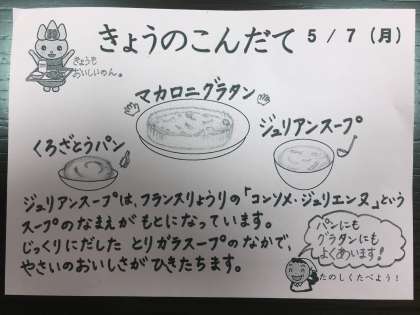 きょうのこんだて 5/7（月）
きょうも
おいしいのん。
マカロニグラタン
ジュリアンスープ
くろざとうパン
ジュリアンスープは、フランスりょうりの「コンソメ・ジュリエンヌ」という
スープのなまえがもとになっています。
じっくりにだした とりガラスープのなかで、
やさいのおいしさがひきたちます。
パンにも
グラタンにも
よくあいます！
たのしくたべよう！